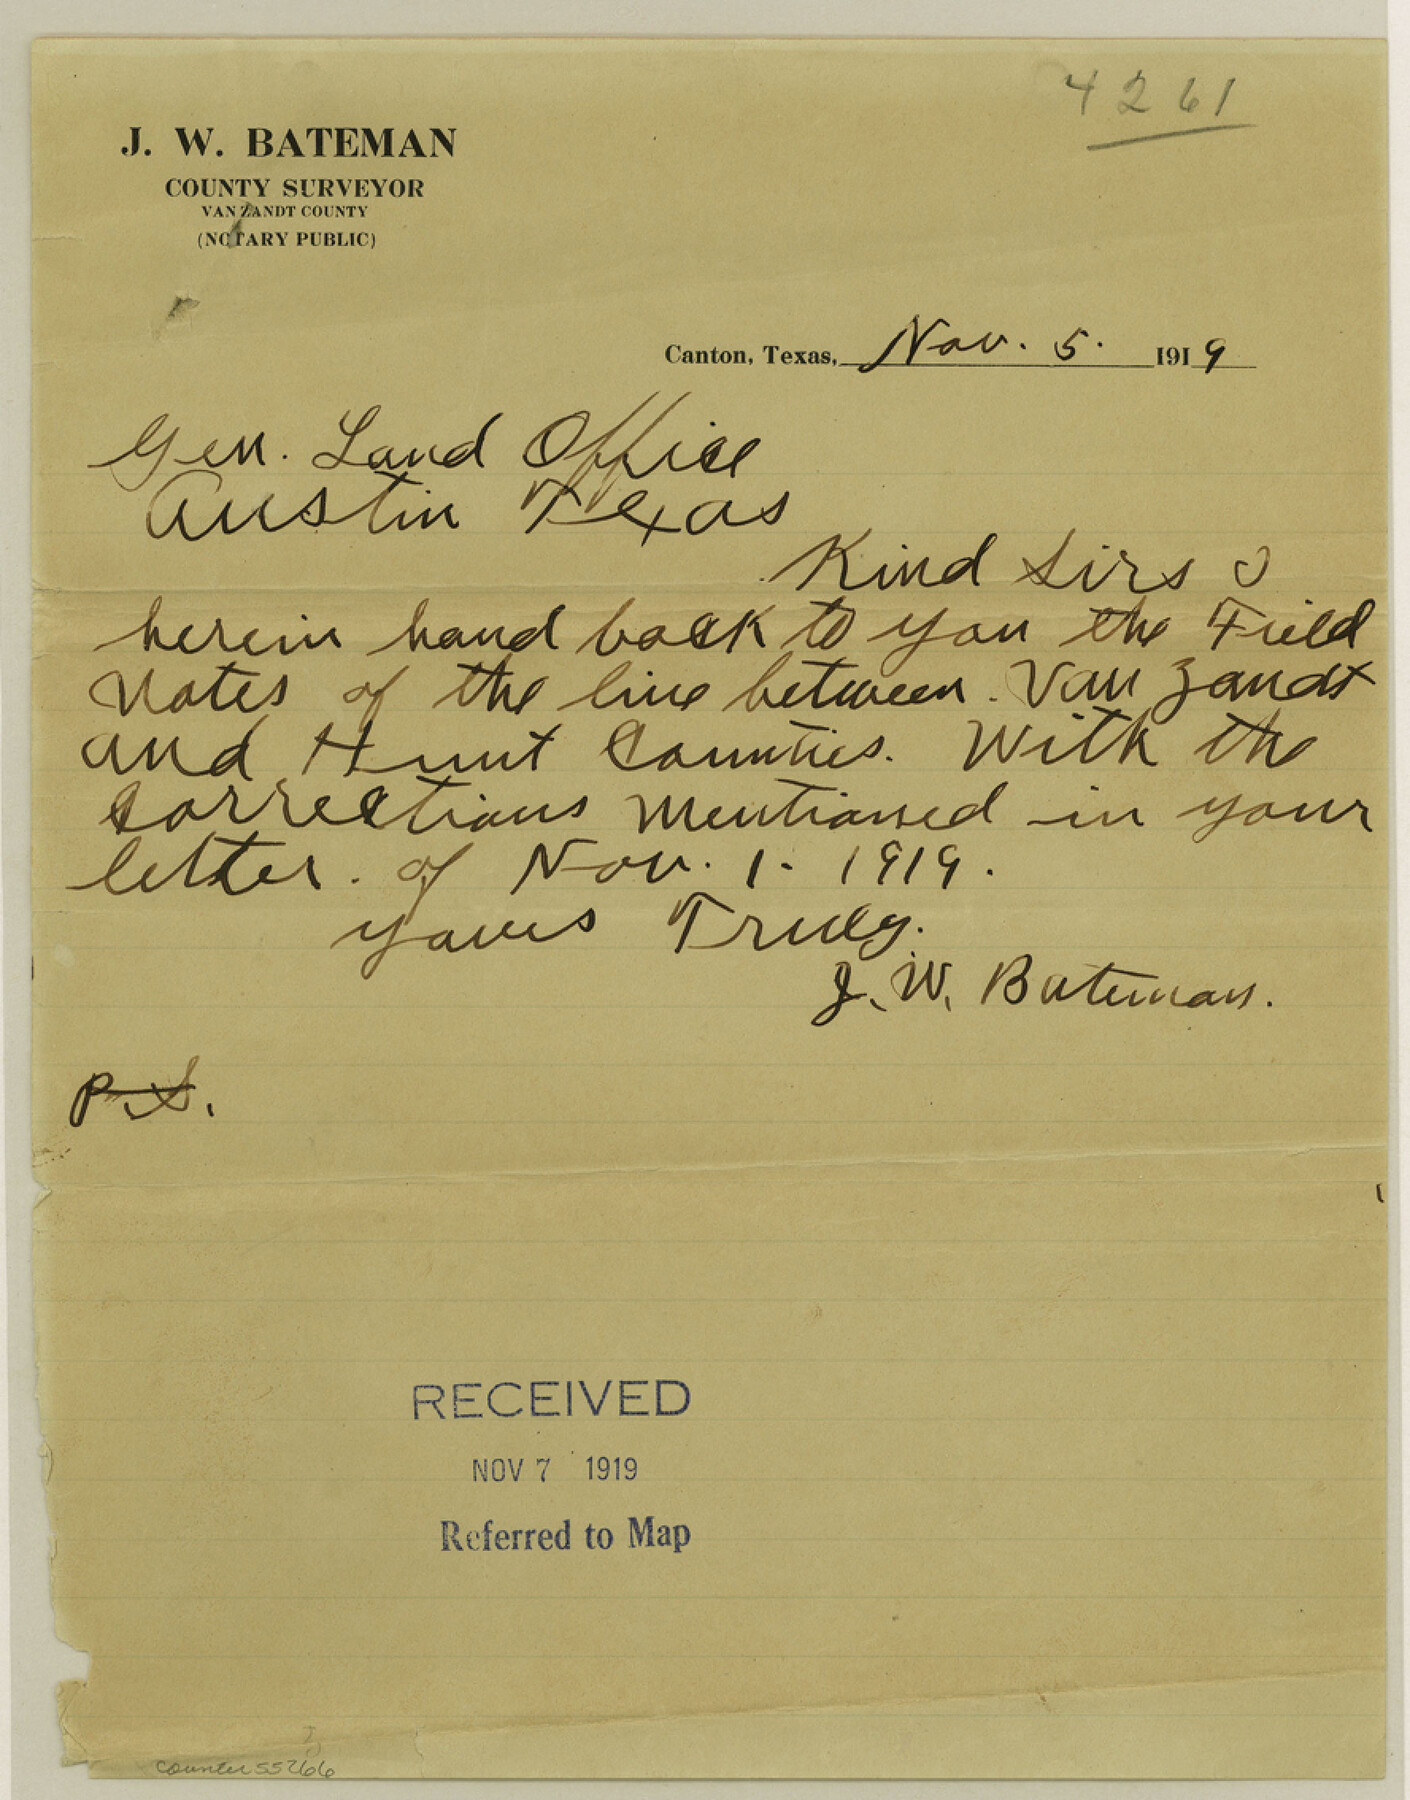 4261
J. W. BATEMAN
COUNTY SURVEYOR
VAN ZANDT COUNTY
(NOTARY PUBLIC)
Canton, Texas, Nov. 5. 1919
Gen. Land Office
Austin Texas
Kind Sirs I
herein hand back to you the Field
Notes of the line between Van Zandt
and Hunt Counties. With the
Corrections Mentioned in your
letter. of Nov. 1. 1919.
yours Truly.
J. W. Bateman.
P.S.
RECEIVED
NOV 7 1919
Referred to Map
counter 55266